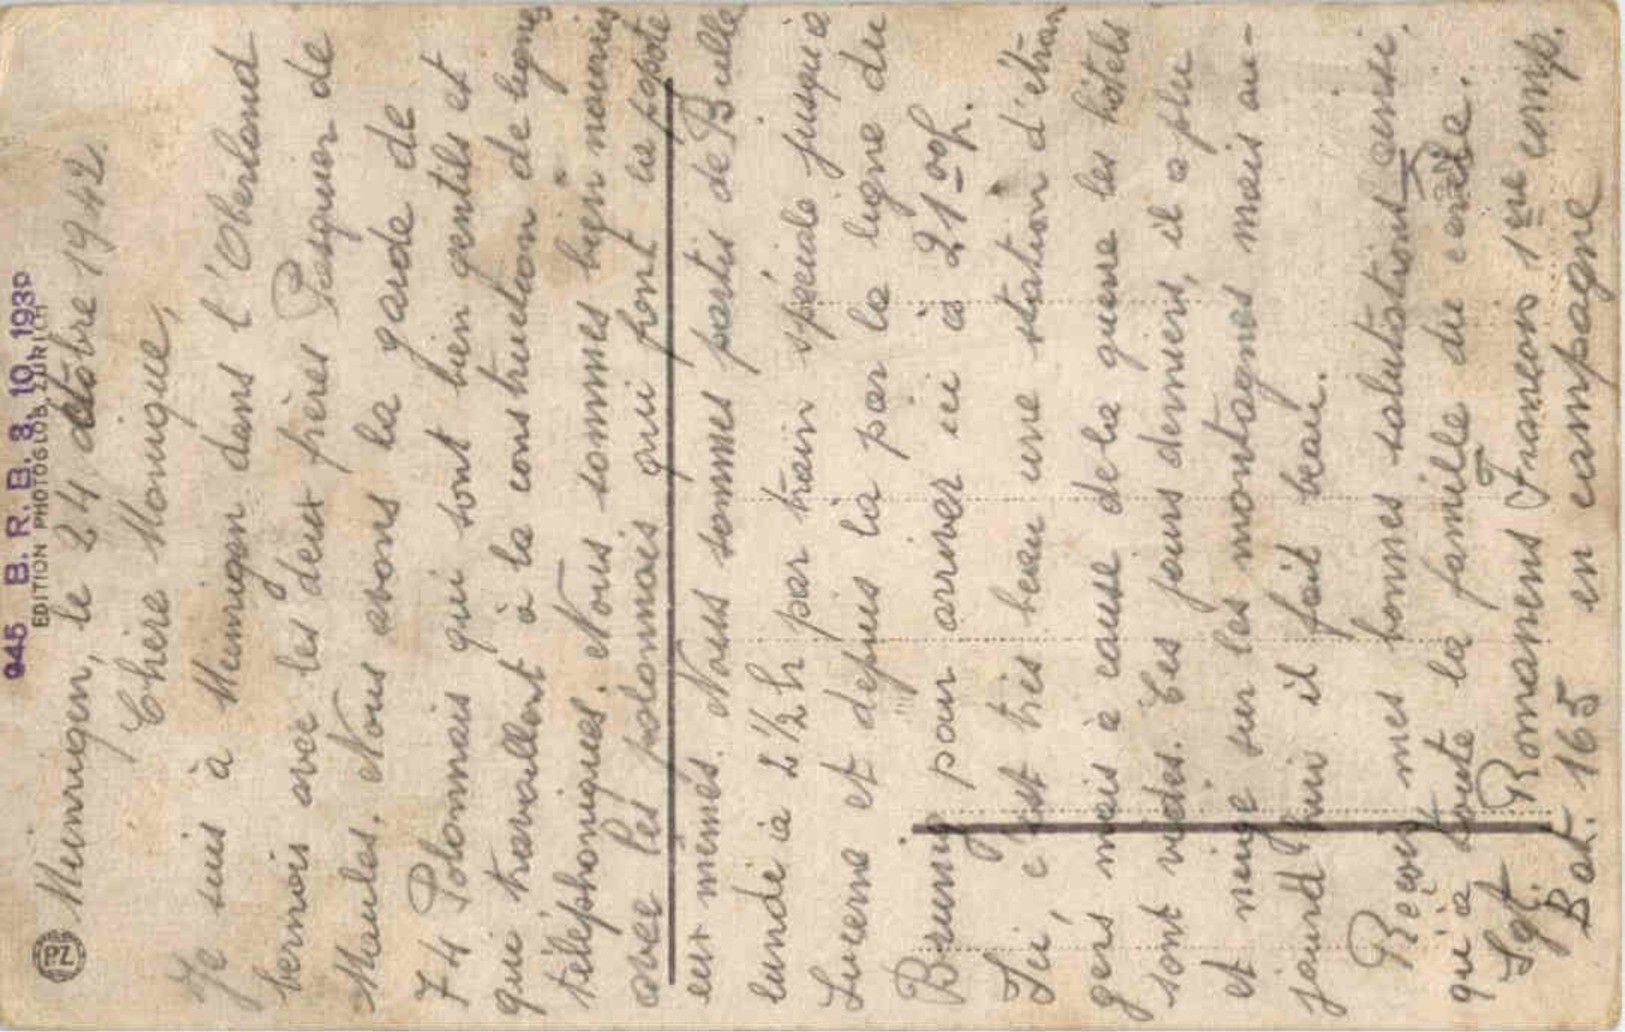 945 B. R. B. 3. 10. 1930
EDITION PHOTOGLOB ZÜRICH
PZ
Meiringen, le 24 octobre 1942.
Chère Monique,
Je suis à Meiringen dans l'Oberland
bernois avec les deux frères Pasquier de
Maules. Nous avons la garde de
74 Polonnais qui sont bien gentils et
qui travaillent à la construction de lignes
téléphoniques. Nous sommes bien nourris
avec les polonnais qui font la popote
eux mêmes. Nous sommes partis de Bulle
lundi à 2 1/2 h par train spéciale jusqu'à
Lucerne et depuis là par la ligne du
Brunig pour arriver ici à 21 00 h.
Ici, c'est très beau une station d'étran
gers mais à cause de la guerre les hôtels
sont vides. Ces jours derniers, il a plu
et neige sur les montagnes mais au-
jourd'hui il fait beau.
Reçois mes bonnes salutations ainsi
qu'à toute la famille du
Sgt. Romanens Francon 1ère comp.
Bat. 165 en campagne